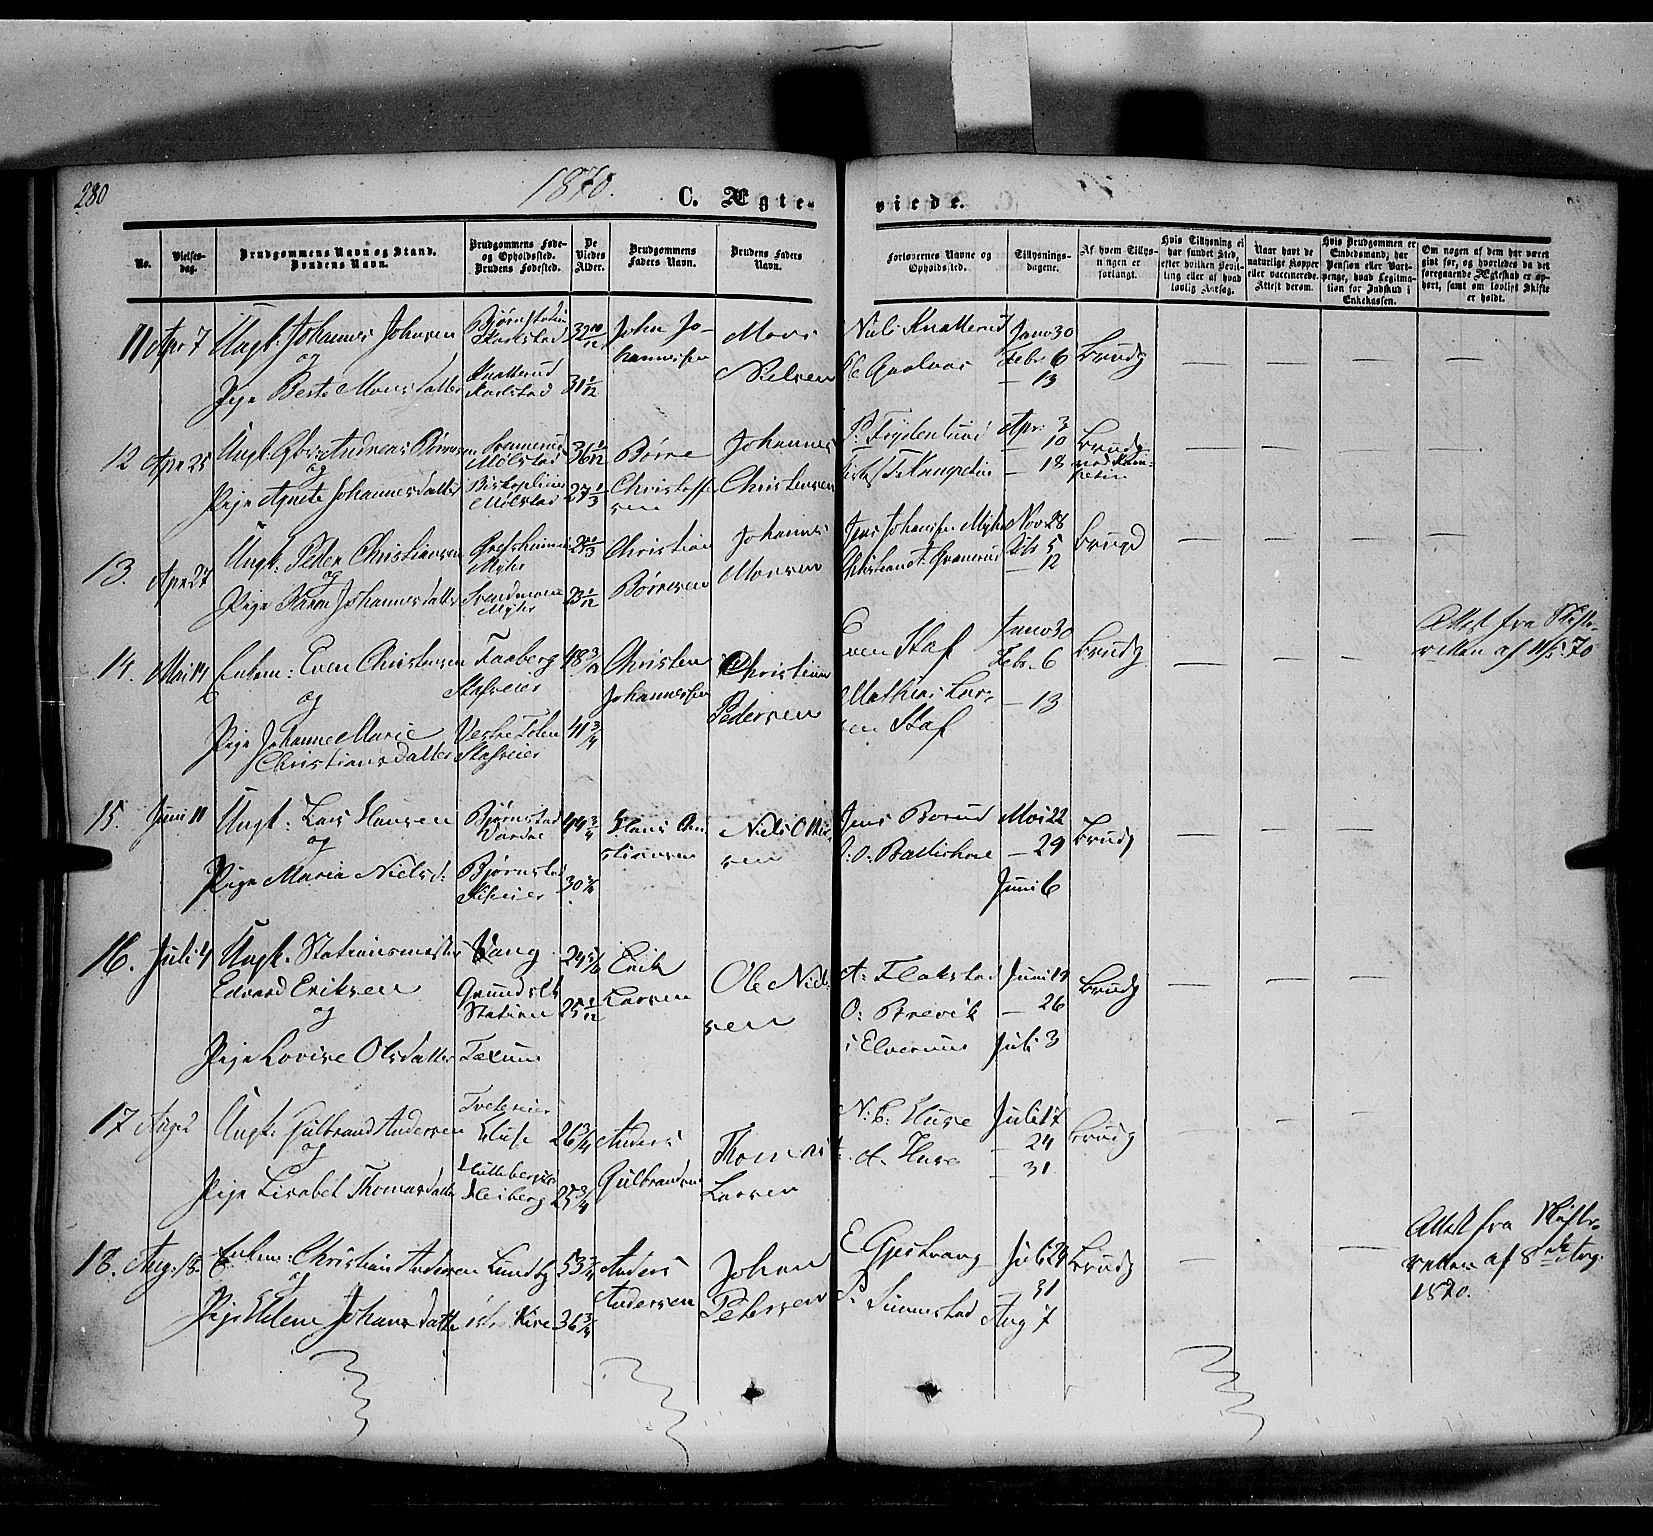 280
1870.
C. Ægte-
viede.
No.
Vielses-
dag.
Brudgommens Navn og Stand.
Brudens Navn.
Brudgommens Føde-
og Opholdssted.
Brudens Fødested.
De
Viedes
Alder.
Brudgommens
Faders Navn.
Brudens Faders
Navn.
Forlovernes Navne og
Opholdssted.
Tillysnings-
dagene.
Af hvem Tillys-
ningen er
forlangt.
Hvis Tillysning ei
har fundet Sted,
efter hvilken Bevil-
ling eller af hvad
lovlig Aarsag.
Naar havt de
naturlige Kopper
eller vaccinerede.
Attest derom.
Hvis Brudgommen er
Embedsmand, har
Pension eller Vart-
penge, hvad Legitima-
tion for Indskud i
Enkekassen.
Om nogen af dem har været
givt før, og hvorledes da det
foregaaende Ægteskab er op-
hørt, samt om lovligt Skifte
er holdt.
11 Apr 7 Ungk: Johannes Johnsen
og
Pige Berte Monsdatter
Karlstad
Knatterud
Karlstad
32 10/12
31 1/12
John Jo-
hannessen
Mons
Nielsen
Niels Knatterud
Janv 30
Febr 6
— 13
Brudg
— — — —
12 Apr 25 Ungk: Andreas
og
Pige Agnete Johannesdatter
Mølstad
Mølstad
36 1/12
27 1/3
Børre
Christoffe
sen
Johannes
Christensen
P. Frydenlund
Apr: 3
10
— 18
Brudg
— — — —
13. Apr 27 Ungk: Peder Christiansen
og
Pige Karen Johannesdatter
Myhr
Myhr
23 1/12
Christian
Børresen
Johannes
Monsen
Jens Johansen Myhr
Novr 28
5
— 12
Brugd
— — — —
14. Mai 14 Enkem: Even Christensen
og
Pige Johanne Marie
Christiansdatter
Faaberg
Stafseier
Vestre Toten
Stafseier
48 3/4
41 3/4
Christen
Johannessen
Christian
Pedersen
Even Staf
Mathias Lar-
sen Staf
Janv 30
Febr. 6
— 13
Brudg
— — —
Attest fra Skifte-
retten af 11/5 70
15. Juni 11 Ungk: Lars Hansen
og
Pige Maria Nielsd:
Bjørnstad
Bjørnstad
44 3/4
30 3/4
Hans Chri
stiansen
Niels Otter
sen
Jens Borud
Mai 22
— 29
Juni 6
Brudg
— — — —
16. Juli 4 Ungk. Stationsmester
Edvard Eriksen
og
Pige Lovise Olsdatter
Vang
Grundset
Station
25 1/12
Erik
Larsen
Ole Niel
sen
A: Flakstad
O: Brevik
i Elverum
Juni 19
— 26
Juli 3
Brudg
— — — —
17 Aug 2 Ungk: Gulbrand Andersen
og
Pige Lisabet Thomasdatter
26 3/4
25 3/4
Anders
Gulbrandsen
Thomas
Larsen
N: C. Huse
A. Huse
Juli 17
— 24
— 31
Brudg
— — —
18. Aug: 18 Enkem: Christian Andersen
og
Pige Helene Johansdatter
Lundby
53 3/4
36 3/4
Anders
Andersen
Johan
Petersen
E Gjestvang
Juli 24
31
Aug 7
Brudg
— —
Attest fra Skifte-
retten af 8de Aug.
1870.